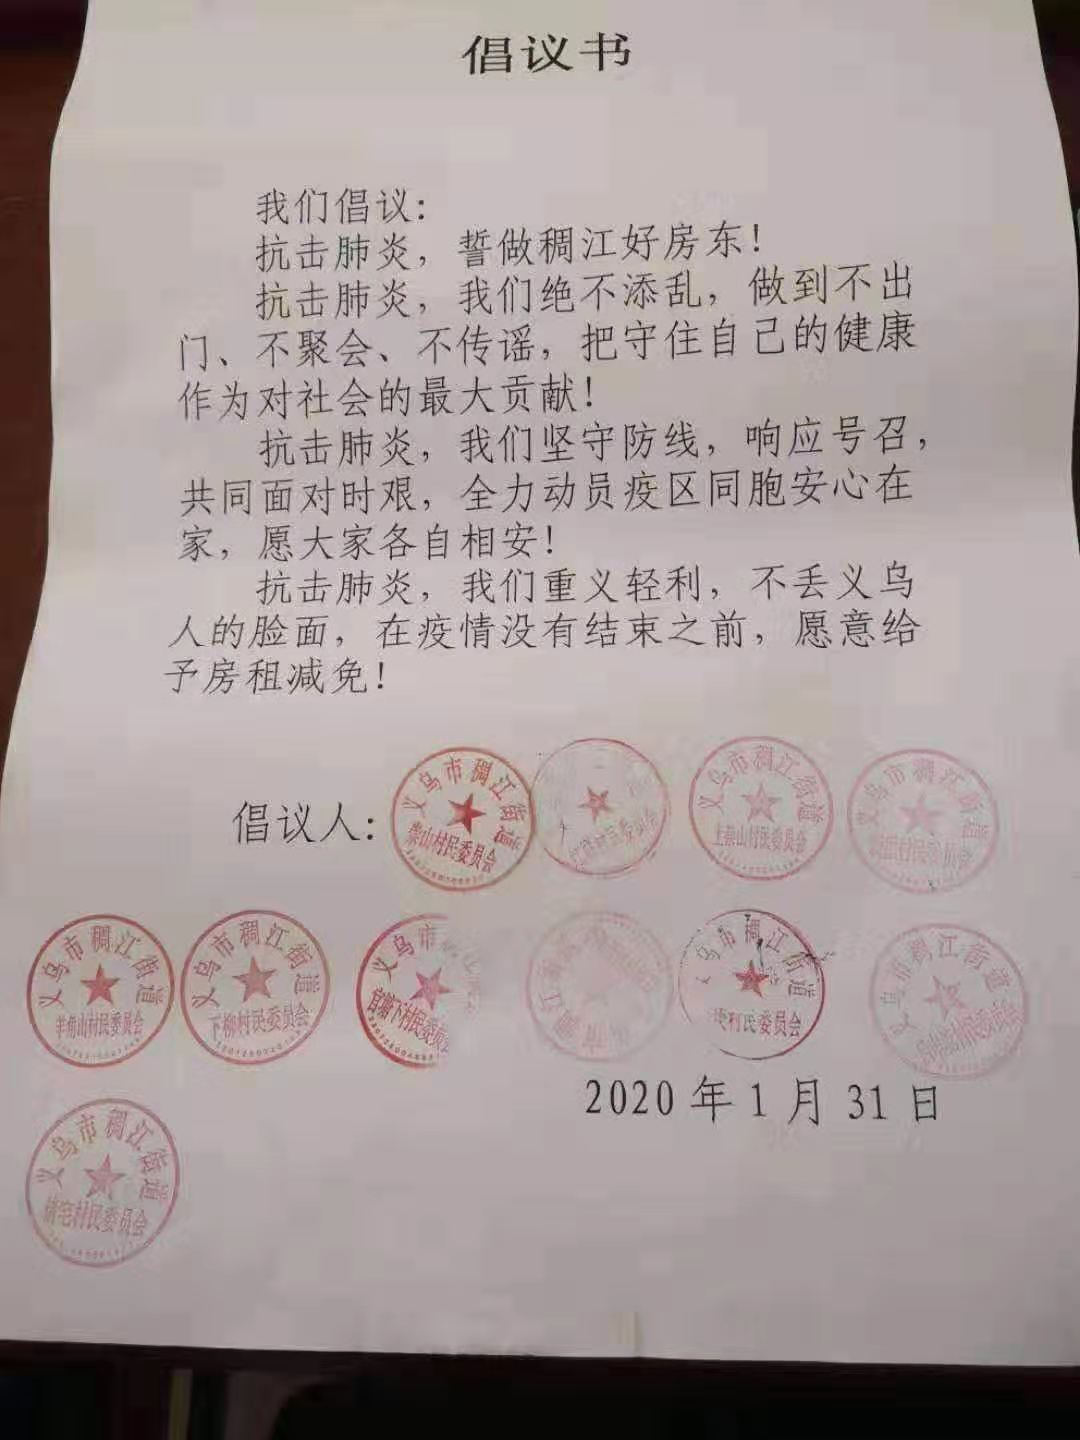 倡议书
我们倡议：
抗击肺炎，誓做稠江好房东！
抗击肺炎，我们绝不添乱，做到不出
门、不聚会、不传谣，把守住自己的健康
作为对社会的最大贡献！
抗击肺炎，我们坚守防线，响应号召，
共同面对时艰，全力动员疫区同胞安心在
家，愿大家各自相安！
抗击肺炎，我们重义轻利，不丢义乌
人的脸面，在疫情没有结束之前，愿意给
予房租减免！
倡议人：
义乌市稠江街道
崇山村民委员会
村民委员会
义乌市稠江街道
上崇山村民委员会
义乌市稠江街道
村民委员会
义乌市稠江街道
羊角山村民委员会
义乌市稠江街道
下柳村民委员会
义乌市稠
官塘下村民委员会
义乌市稠江街道
民委员会
义乌市稠江街道
村民委员会
2020年1月31日
义乌市稠江街道
村民委员会